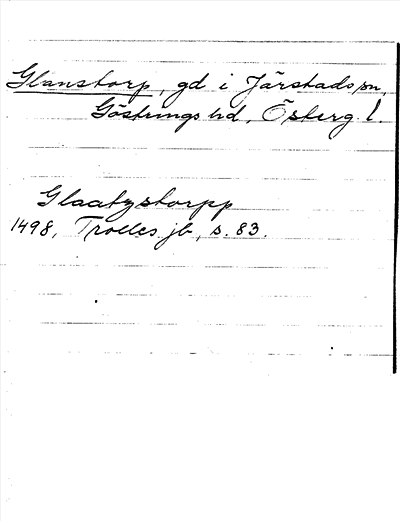 Glanstorp, gd i Järstads sn,
Göstrings hd, Österg. l.
Glaatzstorpp
1498, Trolles jb, s. 83.